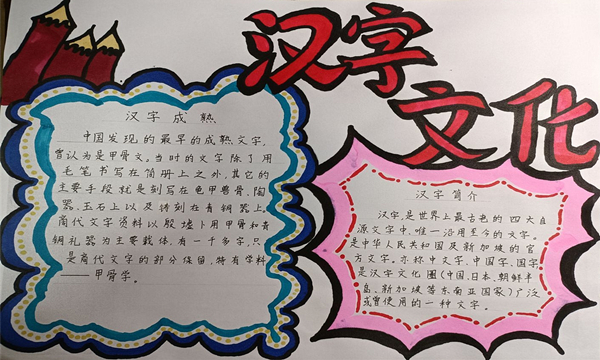 汉字
文化
汉字成熟
中国发现的最早的成熟文字,
曾认为是甲骨文。当时的文字除了用
毛笔书写在简册上之外,其它的
主要手段就是刻写在龟甲兽骨、陶
器、玉石上以及铸刻在青铜器上。
商代文字资料以殷墟卜用甲骨和青
铜礼器为主要载体,有一千多字,只
是商代文字的部分保留,特有学科
——甲骨学。
汉字简介
汉字,是世界上最古老的四大自
源文字中,唯一沿用至今的文字。
是中华人民共和国及新加坡的官
方文字。亦称中文字、中国字、国字,
是汉字文化圈(中国、日本、朝鲜半
岛、新加坡等东南亚国家)广泛
或曾使用的一种文字。